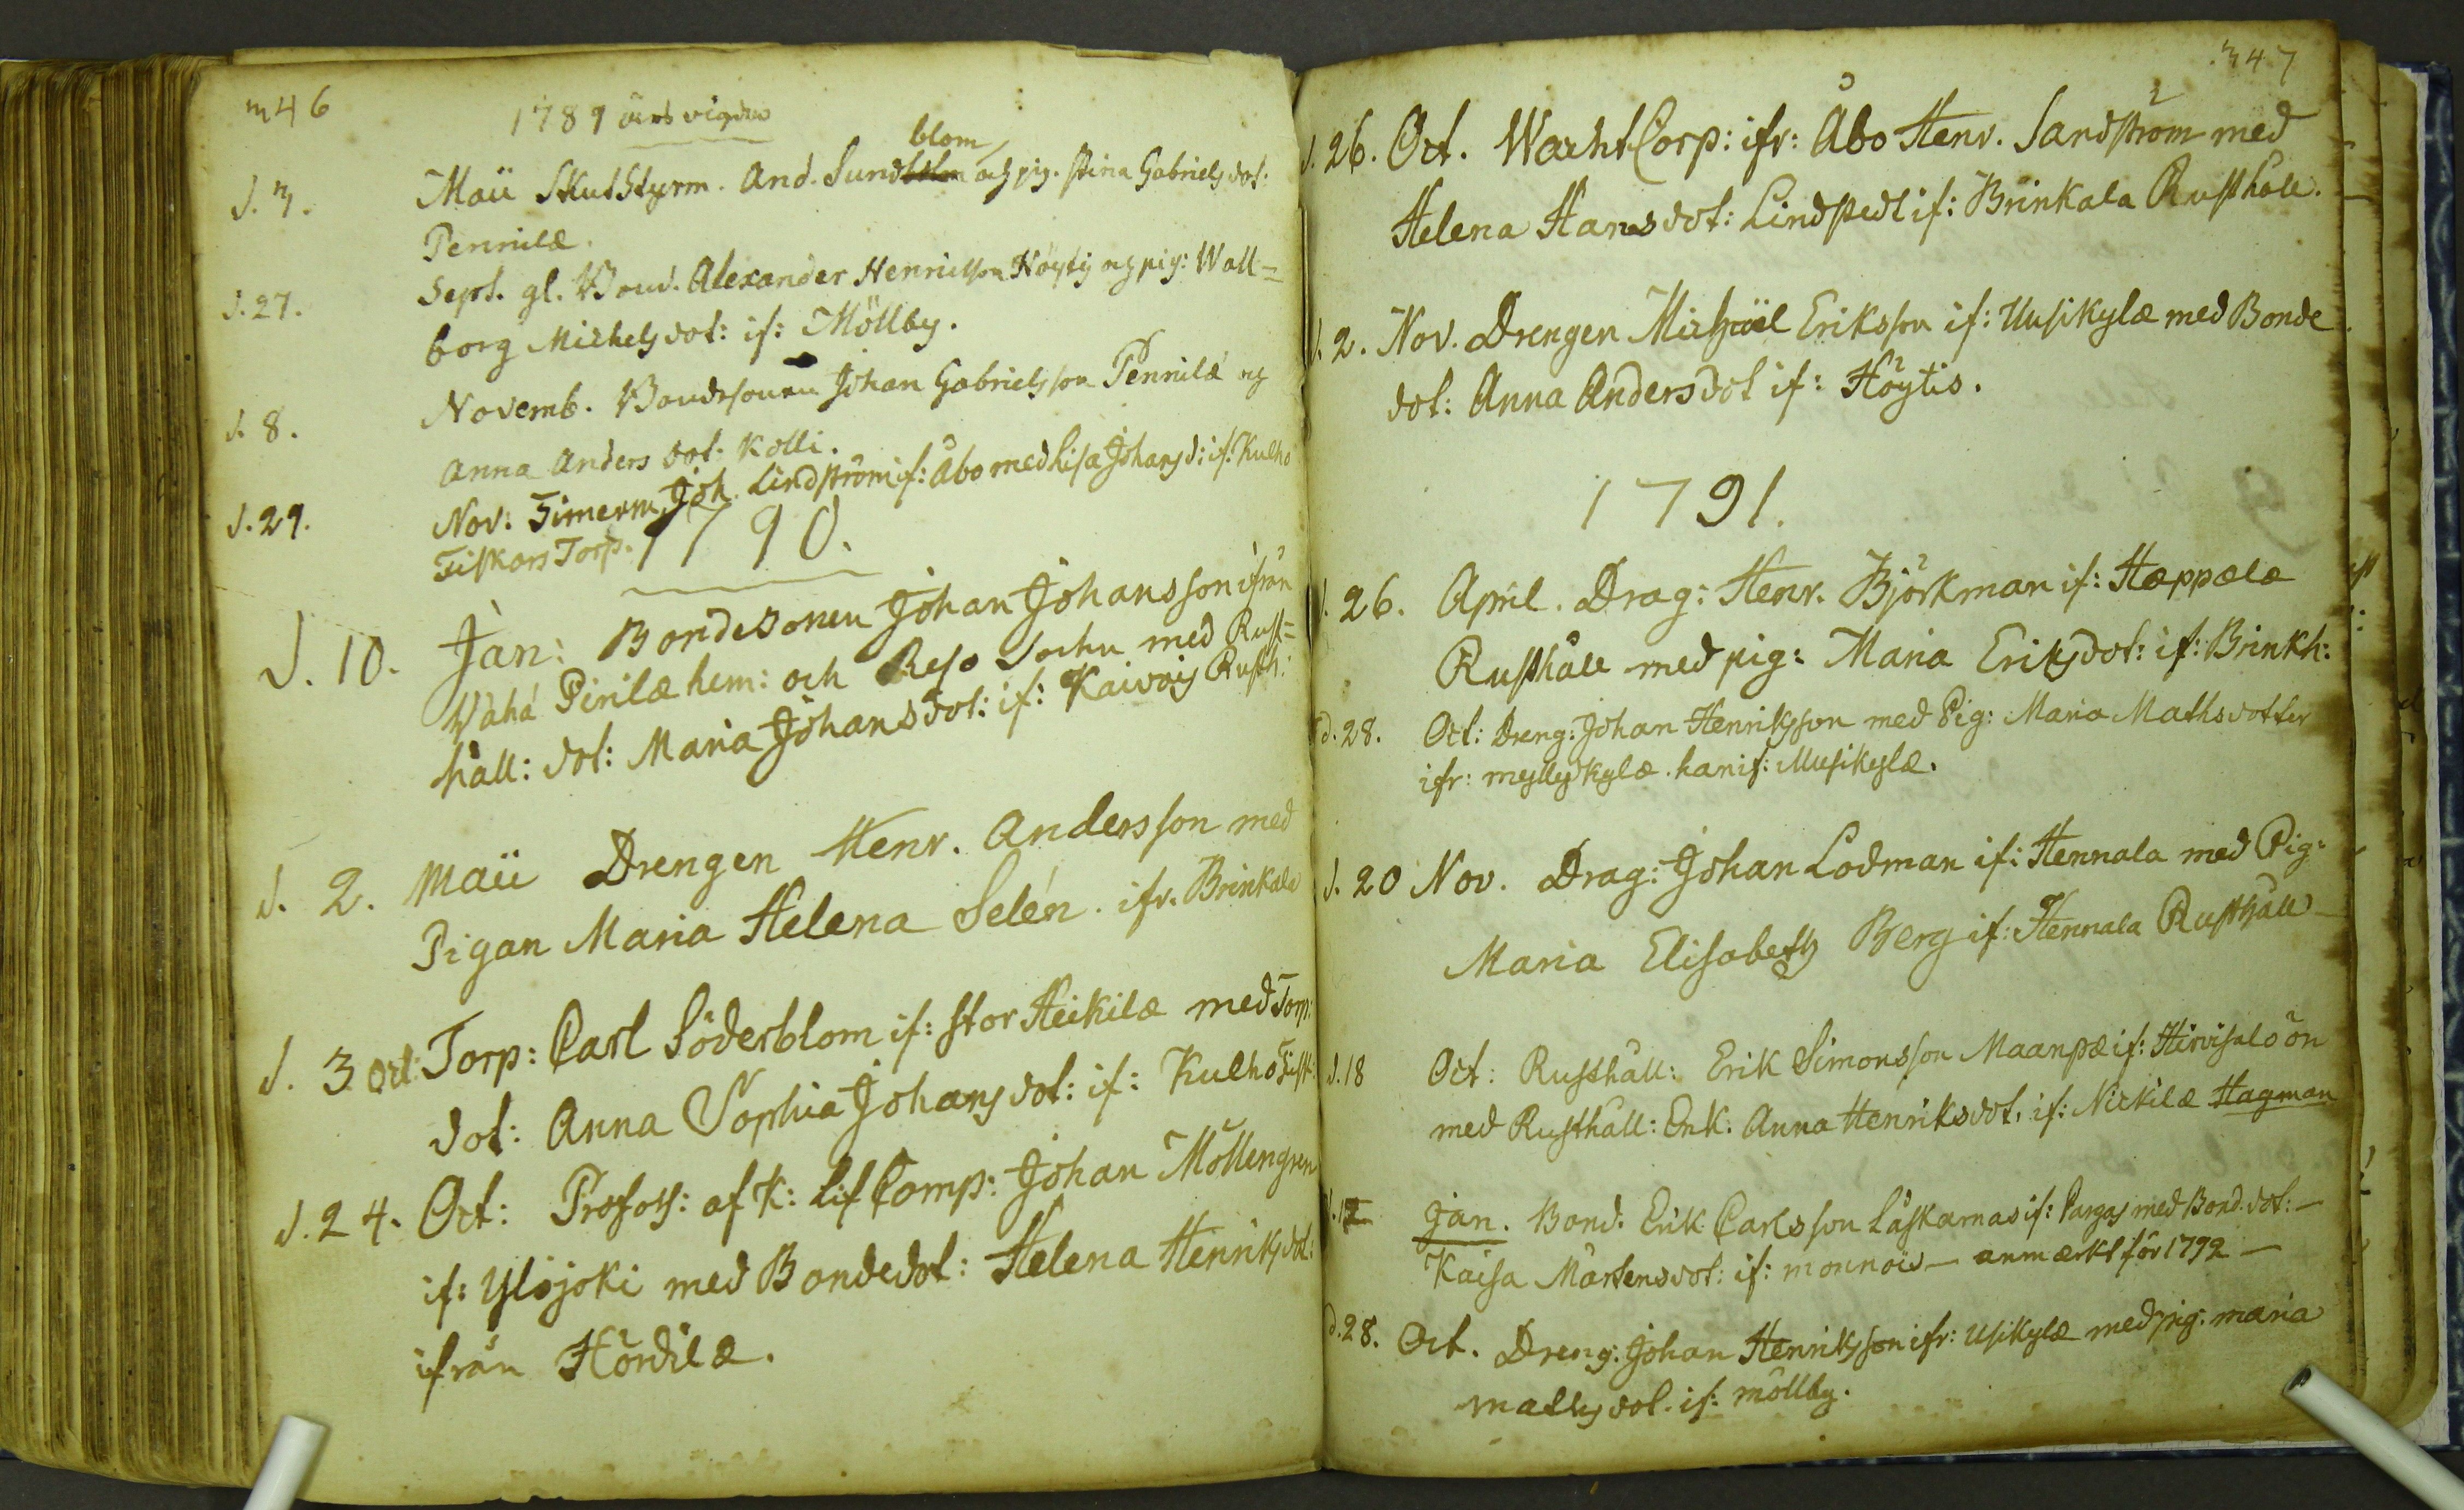 m46
1789 års vigda
blom
d. 3. Maii Skutstyrm. And. Sund och pig. Stina Gabriels dot.
Pennilæ.
d. 27. Sept. gl. Bond. Alexander Henricsson Höytis och pig: Wall=
borg Michels dot: if: Möllby.
d. 8. Novemb. Bondesonen Johan Gabrielsson Pennilä och
Anna Anders dot. Kolli.
d. 29. Nov: Timerm. Joh. Lindström if: Åbo med Lisa Johansd: if: Kulho
Fiskars Torp.
1790.
d. 10. Jan: Bondesonen Johan Johansson ifrån
Wähä Pirilæ hem: och Reso Sochn med Rust=
håll: dot: Maria Johansdot: if: Kaivois Rusth:
d. 2. Maii Drengen Henr. Andersson med
Pigan Maria Helena Selén. ifr. Brinkala
d. 3 Oct: Torp: Carl Söderblom if: stor Heikilæ med Torp:
dot: Anna Sophia Johans dot: if: Kulho Fisk:
d. 24. Oct: Profoss: af K: Lif Comp: Johan Möllengren
if: Ylisjoki med Bondedot: Helena Henriks dot:
ifrån Hördilæ.
347
d. 26. Oct. WachtCorp: ifr: Åbo Henr. Sandström med
Helena Hansdot: Lindstedt if: Brinkala Rusthåll.
d. 2. Nov. Drengen Michael Eriksson if: Uusikylæ med Bonde
dot: Anna Andersdot if: Höytis.
1791.
d. 26. April. Drag: Henr. Björkman if: Hæppælæ
Rusthåll med pig: Maria Eriksdot: if: Brinkh:
d. 28. Oct: Dreng: Johan Henriksson med Pig: Maria Mathsdotter
ifr: myllykylæ. han if: Uusikylæ.
d. 20 Nov. Drag: Johan Lodman if: Hennala med Pig:
Maria Elisabeth Berg if: Hennala Rusthåll
d. 18 Oct: Rusthåll: Erik Simonsson Maanpæ if: Hirvisalo ön
med Rusthåll: Enk: Anna Henriksdot. if: Nickilæ Hagman
d. 12 Jan. Bond. Erik Carlsson Läskarnas if: Pargas med Bond. dot:—
Kaisa Mårtensdot: if: monnois — anmærkt för 1792 —
d. 28. Oct. Dreng: Johan Henriksson ifr: Usikylæ med pig: maria
maths dot. if: möllby.